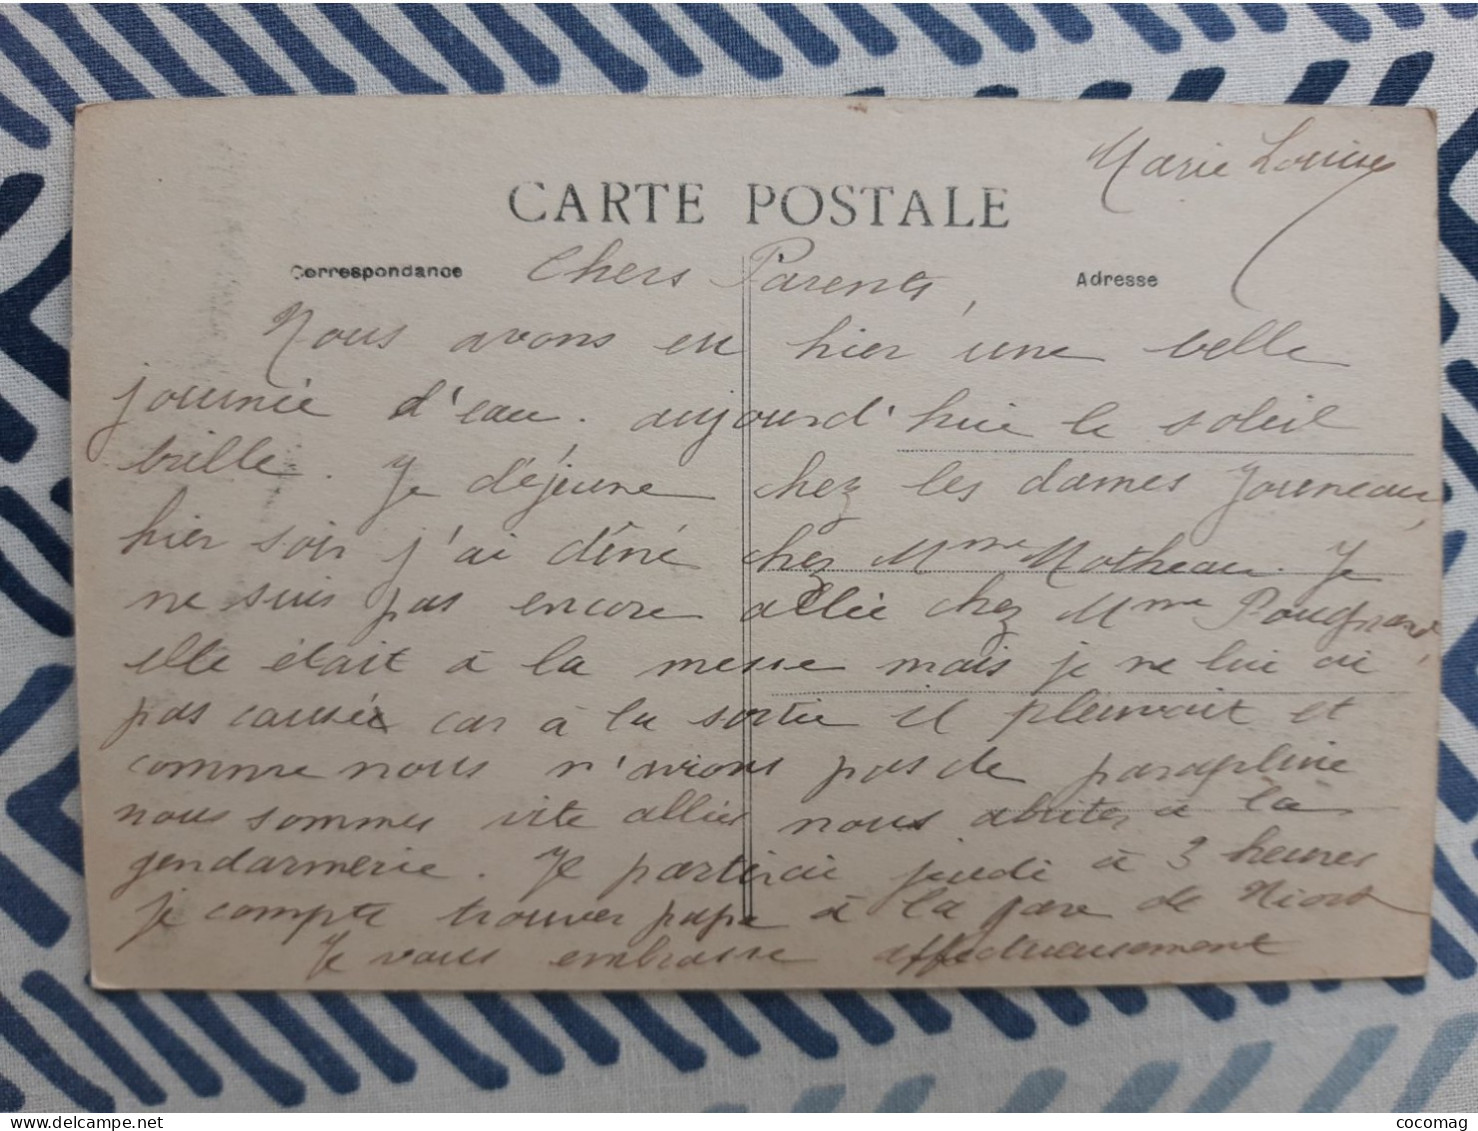 Marie Louise
CARTE POSTALE
Correspondance
Adresse
Chers Parents,
Nous avons eu hier une belle
journée d'eau. aujourd'hui le soleil
brille. Je déjeune chez les dames Jouneau,
hier soir j'ai dîné chez Mme Motheau. Je
ne suis pas encore allée chez Mme Pougnard,
elle était à la messe mais je ne lui ai
pas causée car à la sortie il pleuvait et
comme nous n'avions pas de parapluie
nous sommes vite allées nous abriter à la
gendarmerie. Je partirai jeudi à 3 heures
je compte trouver papa à la gare de Niort
Je vous embrasse affectueusement
cocomag